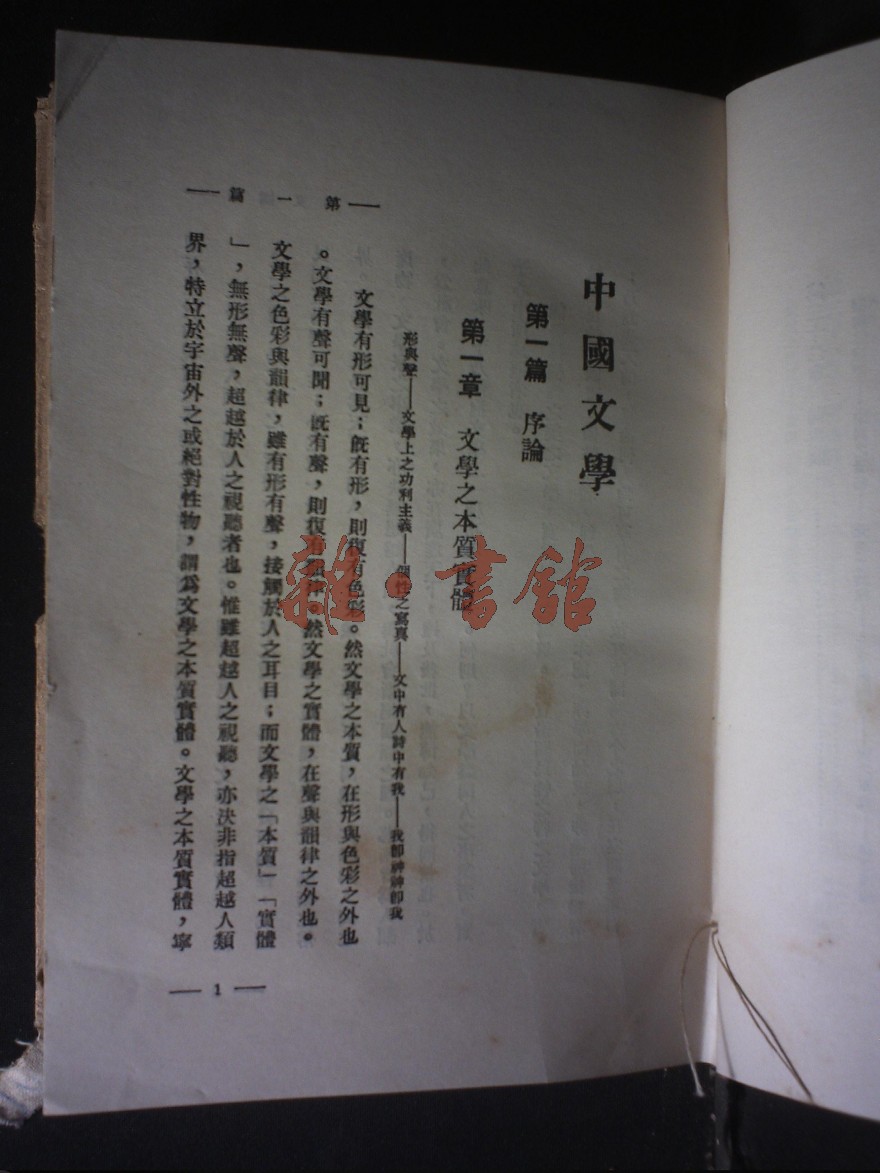 中國文學
第一篇 序論
第一章 文學之本質實體
形與聲——文學上之功利主義——個性之寫真——文中有人詩中有我——我卽神神卽我
文學有形可見；旣有形，則復有色彩。然文學之本質，在形與色彩之外也
。文學有聲可聞；旣有聲，則復有韻律。然文學之實體，在聲與韻律之外也。
文學之色彩與韻律，雖有形有聲，接觸於人之耳目；而文學之「本質」「實體
」，無形無聲，超越於人之視聽者也。惟雖超越人之視聽，亦決非指超越人類
界，特立於宇宙外之或絕對性物，謂爲文學之本質實體。文學之本質實體，寧
第一篇
1
雜·書館